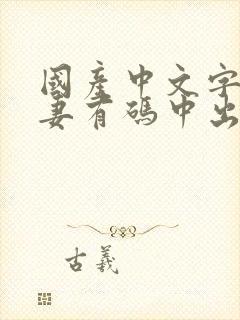 國產中文字
妻有碼中出
古義